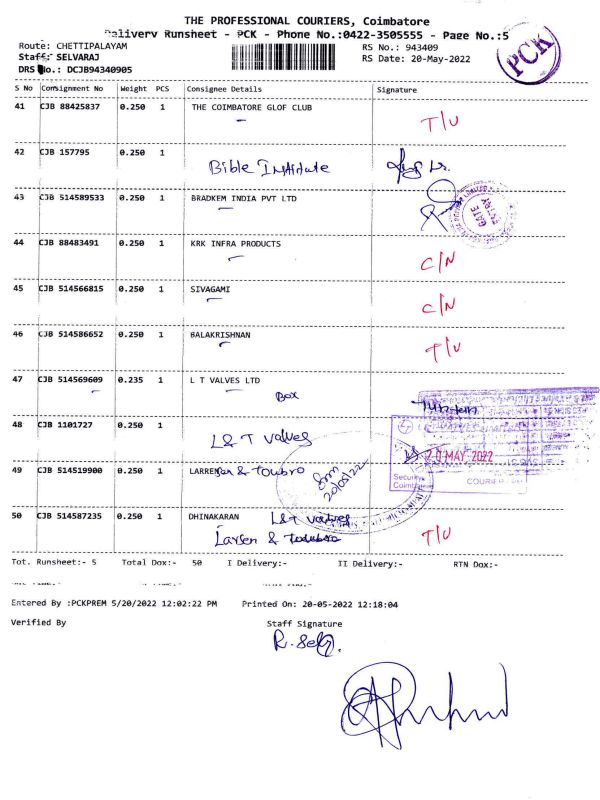 THE PROFESSIONAL COURIERS, Coimbatore
Delivery Runsheet - PCK - Phone No.:0422-3505555 - Page No.:5
Route: CHETTIPALAYAM RS No.: 943409
Staff: SELVARAJ RS Date: 20-May-2022
DRS No.: DCJB94340905
PCK
S No Consignment No Weight PCS Consignee Details Signature
41 CJB 88425837 0.250 1 THE COIMBATORE GLOF CLUB T/U
42 CJB 157795 0.250 1 Bible Institute
43 CJB 514589533 0.250 1 BRADKEM INDIA PVT LTD
GATE ENTRY
44 CJB 88483491 0.250 1 KRK INFRA PRODUCTS C/N
45 CJB 514566815 0.250 1 SIVAGAMI C/N
46 CJB 514586652 0.250 1 BALAKRISHNAN T/U
47 CJB 514569609 0.235 1 L T VALVES LTD
Box
48 CJB 1101727 0.250 1 L& T Valves
20 MAY 2022
49 CJB 514519900 0.250 1 LARREN & Toubro
20/05/22
Security
COURIER
50 CJB 514587235 0.250 1 DHINAKARAN L&T Valves T/U
Larsen & Toubro
Tot. Runsheet:- 5 Total Dox:- 50 I Delivery:- II Delivery:- RTN Dox:-
Entered By :PCKPREM 5/20/2022 12:02:22 PM Printed On: 20-05-2022 12:18:04
Verified By Staff Signature
R. Selv